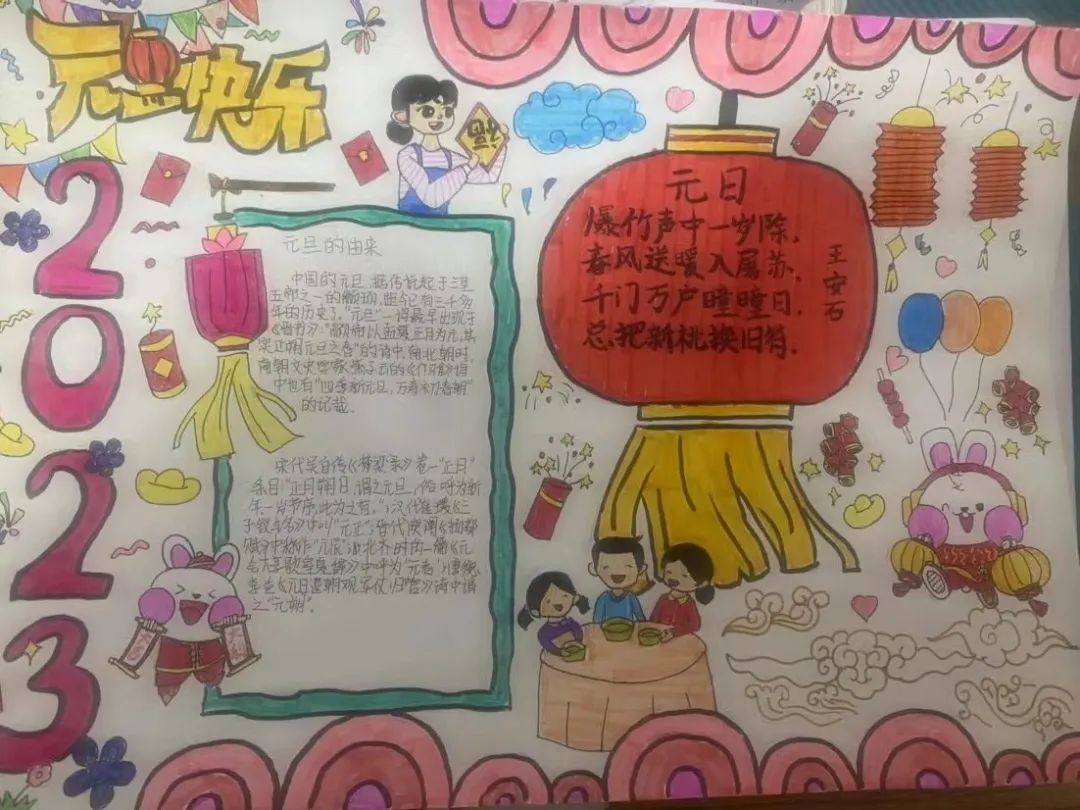 元旦快乐
2023
元旦的由来
中国的元旦,据传说起于三皇
五帝之一的颛顼,距今已有三千多
年的历史了。"元旦"一词最早出现于
《晋书》:"颛帝以孟夏正月为元,其
实正朔元旦之春"的诗中。南北朝时,
南朝文史学家萧子云的《介雅》诗
中也有"四季新元旦,万寿初春朝"
的记载。
宋代吴自牧《梦粱录》卷一"正月"
条目"正月朔日,谓之元旦,俗呼为新
年。一岁节序,此为之首。";汉代崔瑗《三
子钗玉名》中叫"元正";晋代庾阐《扬都
赋》中称作"元辰";北齐时的一篇《元
会大享歌皇夏辞》中呼为"元春";唐德
宗李适《元日退朝观军仗归营》诗中谓
之"元朔"。
元日
王安石
爆竹声中一岁除,
春风送暖入屠苏。
千门万户曈曈日,
总把新桃换旧符。